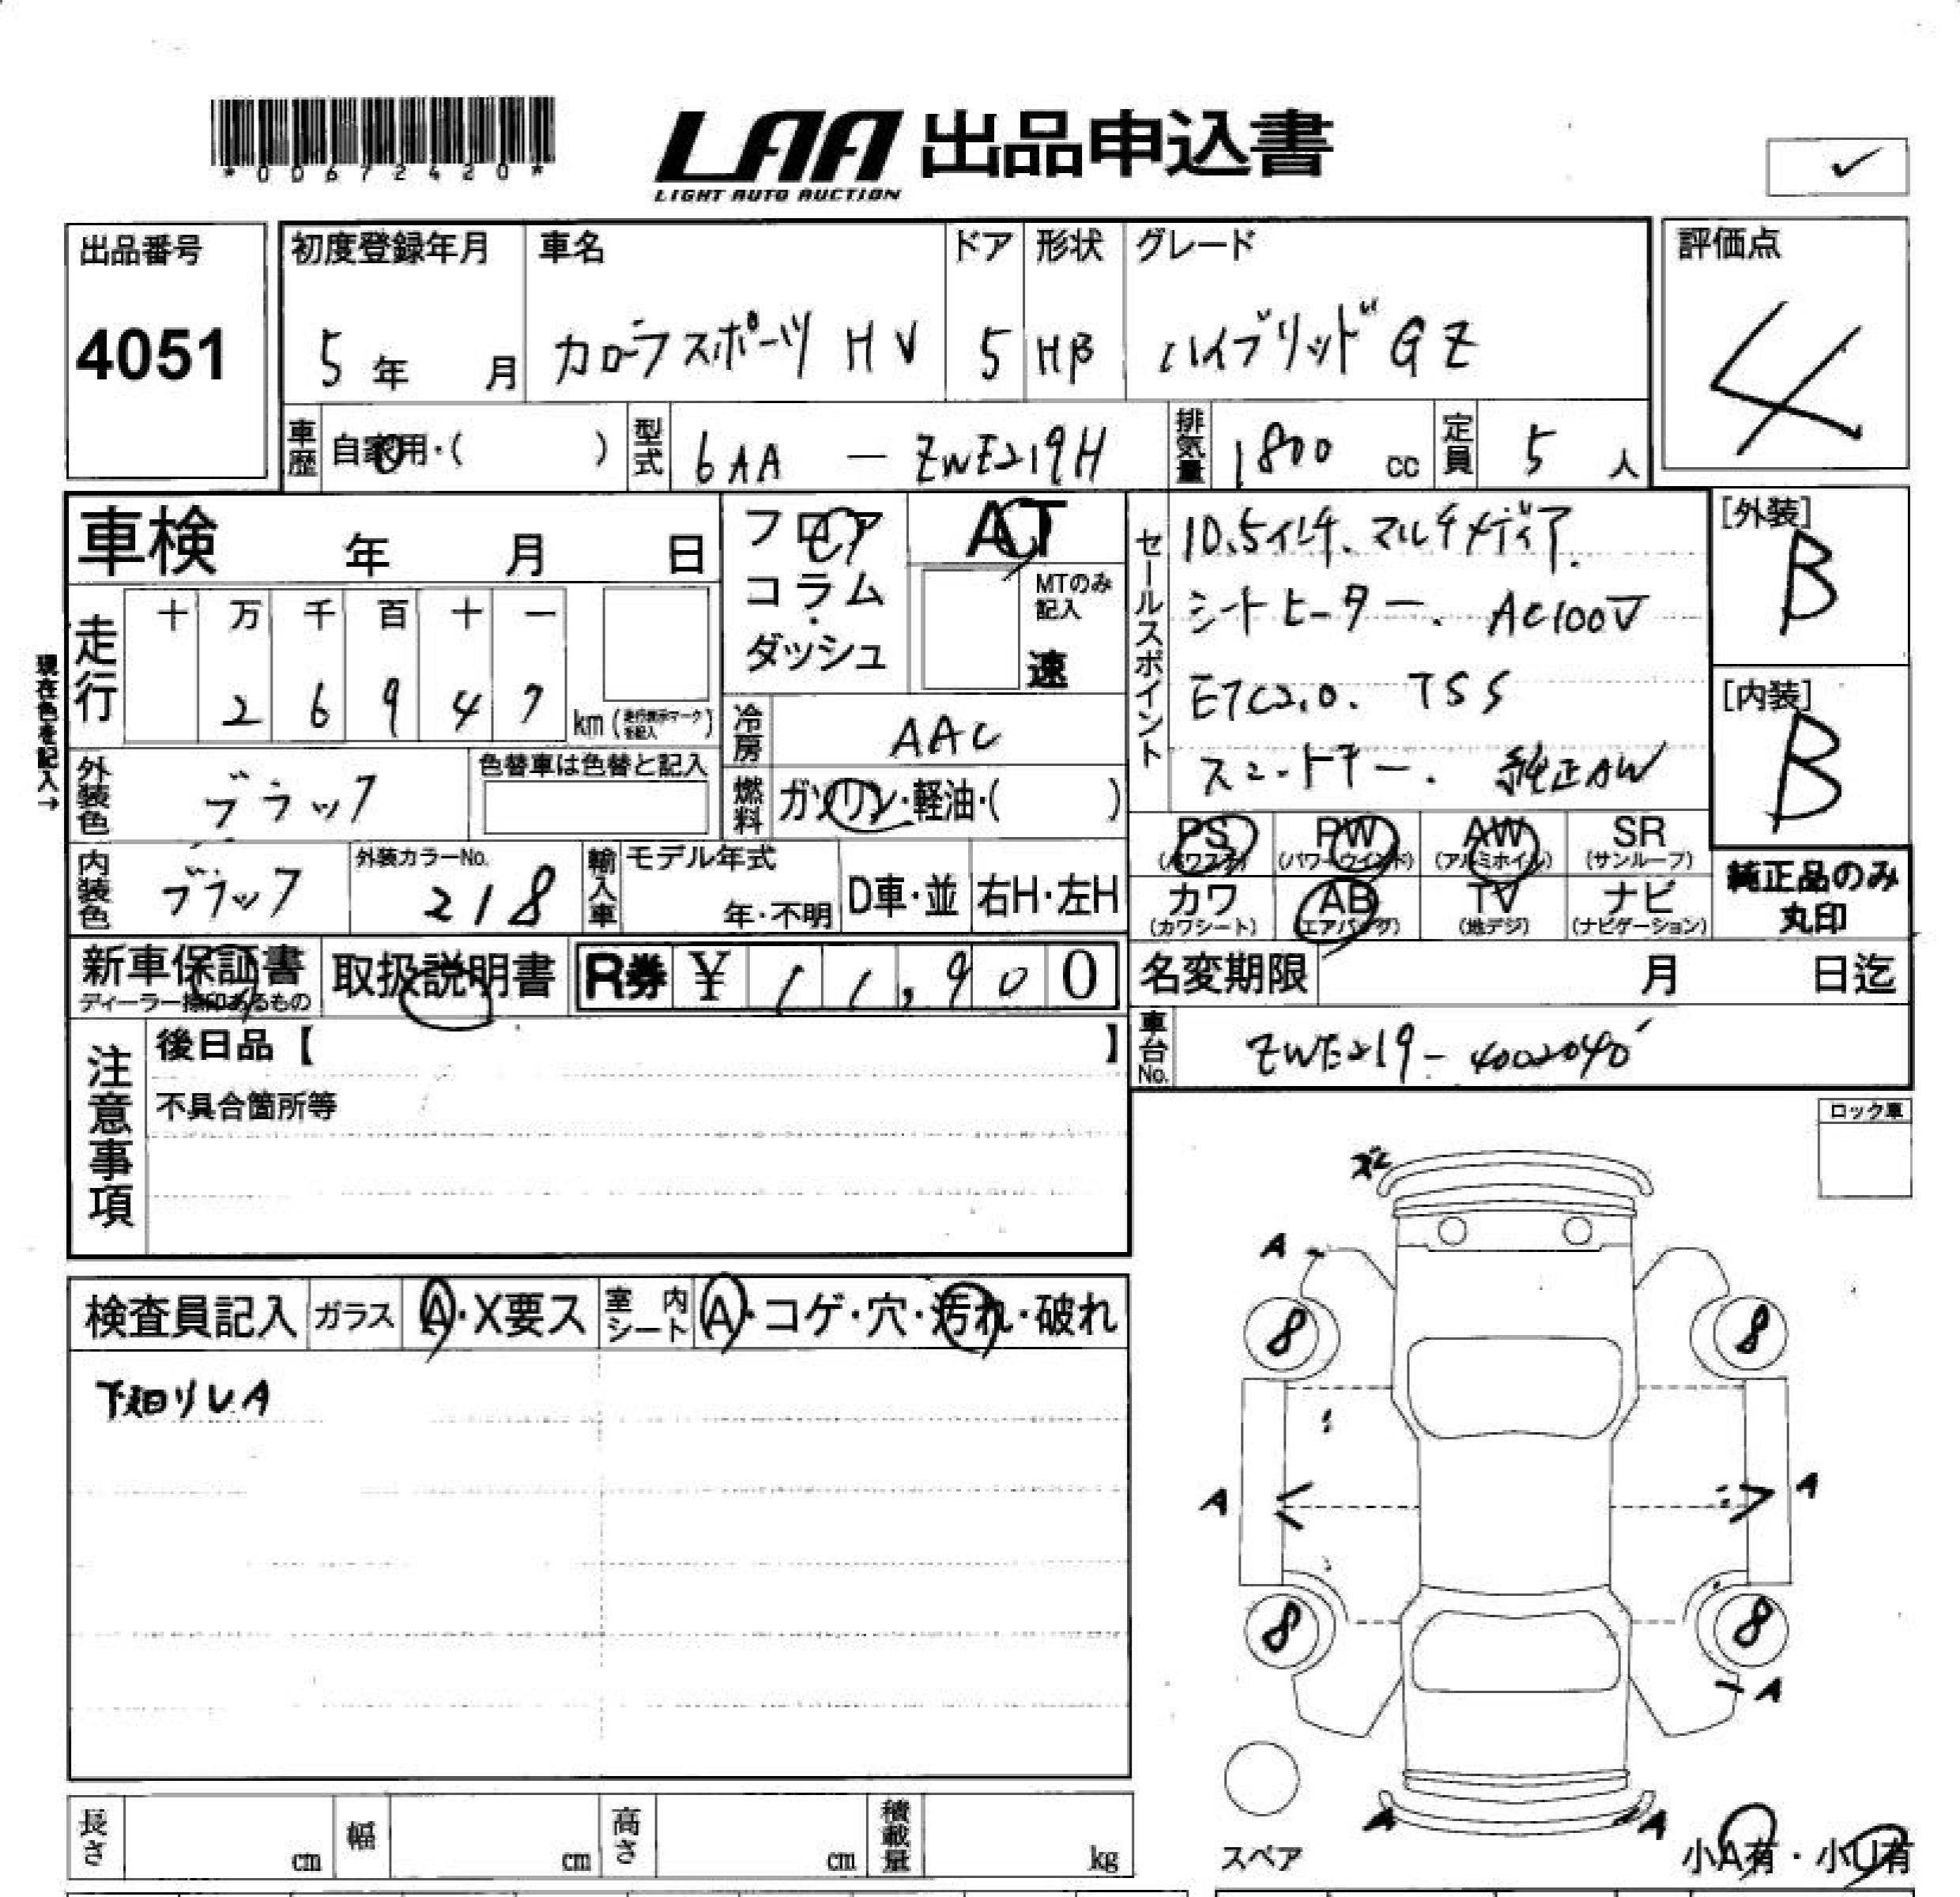 *00672420*
LAA 出品申込書
LIGHT AUTO AUCTION
✓
出品番号
4051
初度登録年月
5年 月
車名
カローラスポーツ HV
ドア
5
形状
HB
グレード
ハイブリッド GZ
評価点
4
車歴
自家用・( )
型式
6AA - ZWE219H
排気量
1800 cc
定員
5 人
車検 年 月 日
フロア
コラム・
ダッシュ
AT
MTのみ記入
速
セールスポイント
10.5インチ、マルチメディア.
シートヒーター. AC100V
ETC2.0. TSS
スマートキー. 純正AW
[外装]
B
[内装]
B
現在色を記入→
走行
十 万 千 百 十 一
2 6 9 4 7 km (走行表示マークを記入)
冷房
AAC
外装色
ブラック
色替車は色替と記入
燃料
ガソリン・軽油・( )
内装色
ブラック
外装カラーNo.
218
輸入車
モデル年式
年・不明
D車・並
右H・左H
PS (パワステ)
PW (パワーウインド)
AW (アルミホイル)
SR (サンルーフ)
カワ (カワシート)
AB (エアバッグ)
TV (地デジ)
ナビ (ナビゲーション)
純正品のみ
丸印
新車保証書
ディーラー捺印あるもの
取扱説明書
R券 ¥ 11,900
名変期限 月 日迄
注意事項
後日品【 】
不具合箇所等
車台No.
ZWE219-4002040
ロック車
検査員記入
ガラス A・X要ス
室内シート A・コゲ・穴・汚れ・破れ
下廻りレA
A
8
8
A
A
8
8
A
A
A
スペア
小A有・小U有
長さ cm
幅 cm
高さ cm
積載量 kg